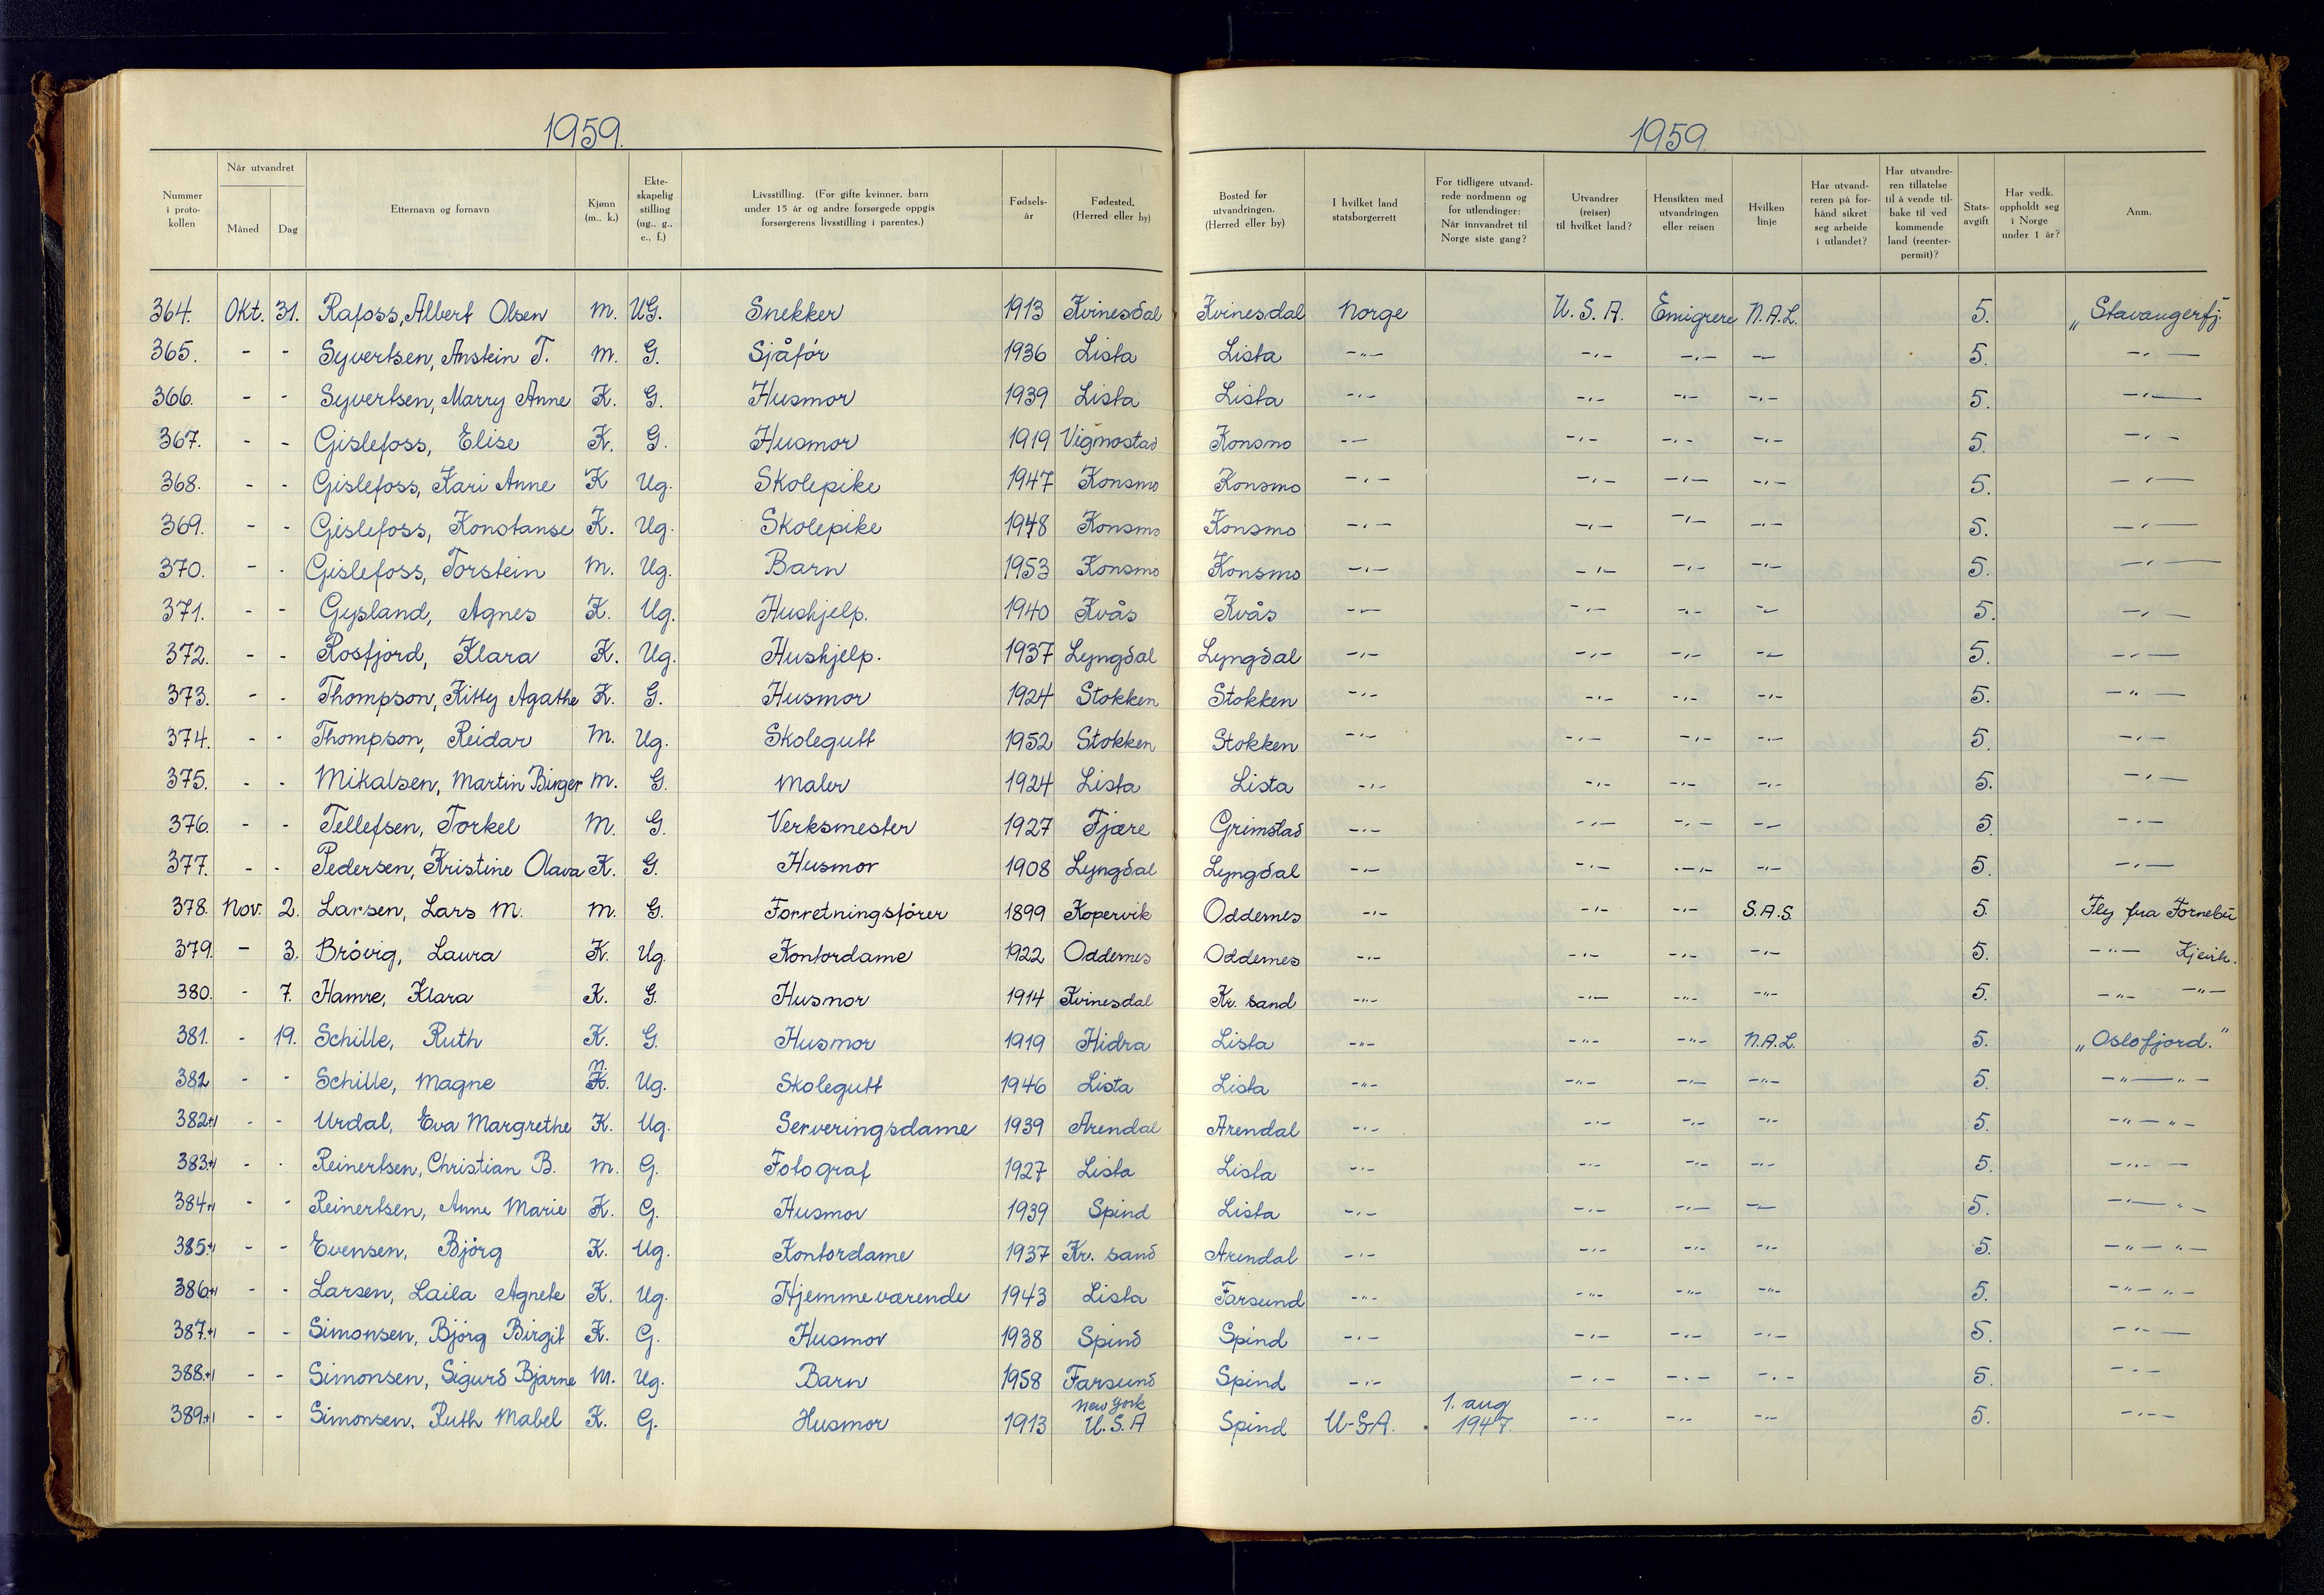 1959.
1959.
Nummer i protokollen | Når utvandret Måned | Dag | Etternavn og fornavn | Kjønn (m., k.) | Ekteskapelig stilling (ug., g., e., f.) | Livsstilling. (For gifte kvinner, barn under 15 år og andre forsørgede oppgis forsørgerens livsstilling i parentes.) | Fødselsår | Fødested. (Herred eller by) | Bosted før utvandringen. (Herred eller by) | I hvilket land statsborgerrett | For tidligere utvandrede nordmenn og for utlendinger: Når innvandret til Norge siste gang? | Utvandrer (reiser) til hvilket land? | Hensikten med utvandringen eller reisen | Hvilken linje | Har utvandreren på forhånd sikret seg arbeide i utlandet? | Har utvandreren tillatelse til å vende tilbake til ved kommende land (reenterpermit)? | Statsavgift | Har vedk. oppholdt seg i Norge under 1 år? | Anm.
364. Okt. 31. Rafoss, Albert Olsen m. UG. Snekker 1913 Kvinesdal Kvinesdal Norge U.S.A. Emigrere N.A.L. 5. „Stavangerfj.
365. - - Syvertsen, Anstein T. m. G. Sjåfør 1936 Lista Lista -"- -"- -"- -"- 5. -"-
366. - - Syvertsen, Marry Anne K. G. Husmor 1939 Lista Lista -"- -"- -"- -"- 5. -"-
367. - - Gislefoss, Elise K. G. Husmor 1919 Vigmostad Konsmo -"- -"- -"- -"- 5. -"-
368. - - Gislefoss, Kari Anne K Ug. Skolepike 1947 Konsmo Konsmo -"- -"- -"- -"- 5. -"-
369. - - Gislefoss, Konstanse K. Ug. Skolepike 1948 Konsmo Konsmo -"- -"- -"- -"- 5. -"-
370. - - Gislefoss, Torstein m. Ug. Barn 1953 Konsmo Konsmo -"- -"- -"- -"- 5. -"-
371. - - Gysland, Agnes K. Ug. Hushjelp. 1940 Kvås Kvås -"- -"- -"- -"- 5. -"-
372. - - Rosfjord, Klara K. Ug. Hushjelp. 1937 Lyngdal Lyngdal -"- -"- -"- -"- 5. -"-
373. - - Thompson, Kitty Agathe K. G. Husmor 1924 Stokken Stokken -"- -"- -"- -"- 5. -"-
374. - - Thompson, Reidar M. Ug. Skolegutt 1952 Stokken Stokken -"- -"- -"- -"- 5. -"-
375. - - Mikalsen, Martin Birger m. G. Maler 1924 Lista Lista -"- -"- -"- -"- 5. -"-
376. - - Tellefsen, Torkel M. G. Verksmester 1927 Fjære Grimstad -"- -"- -"- -"- 5. -"-
377. - - Pedersen, Kristine Olava K. G. Husmor 1908 Lyngdal Lyngdal -"- -"- -"- -"- 5. -"-
378. Nov. 2. Larsen, Lars M. m. G. Forretningsfører 1899 Kopervik Oddernes -"- -"- -"- S.A.S. 5. Fly fra Fornebu
379. - 3. Brøvig, Laura K. Ug. Kontordame 1922 Oddernes Oddernes -"- -"- -"- -"- 5. -"- Kjevik.
380. - 7. Hamre, Klara K. G. Husmor 1914 Kvinesdal Kr. sand -"- -"- -"- -"- 5. -"- -"-
381. - 19. Schille, Ruth K. G. Husmor 1919 Hidra Lista -"- -"- -"- N.A.L. 5. „Oslofjord."
382 - - Schille, Magne m. K. Ug. Skolegutt 1946 Lista Lista -"- -"- -"- -"- 5. -"- "-
382+1 - - Urdal, Eva Margrethe K. Ug. Serveringsdame 1939 Arendal Arendal -"- -"- -"- -"- 5. -"- "-
383+1 - - Reinertsen, Christian B. m. G. Fotograf 1927 Lista Lista -"- -"- -"- -"- 5. -"-
384+1 - - Reinertsen, Anne Marie K. G. Husmor 1939 Spind Lista -"- -"- -"- -"- 5. -"- "-
385+1 - - Evensen, Bjørg K. Ug. Kontordame 1937 Kr. sand Arendal -"- -"- -"- -"- 5. -"- "-
386+1 - - Larsen, Laila Agnete K. Ug. Hjemmeværende 1943 Lista Farsund -"- -"- -"- -"- 5. -"- "-
387+1 - - Simonsen, Bjørg Birgit K. G. Husmor 1938 Spind Spind -"- -"- -"- -"- 5. -"-
388+1 - - Simonsen, Sigurd Bjarne M. Ug. Barn 1958 Farsund Spind -"- -"- -"- -"- 5. -"-
389+1 - - Simonsen, Ruth Mabel K. G. Husmor 1913 New York U.S.A Spind U.S.A. 1. aug 1947. -"- -"- -"- 5. -"-